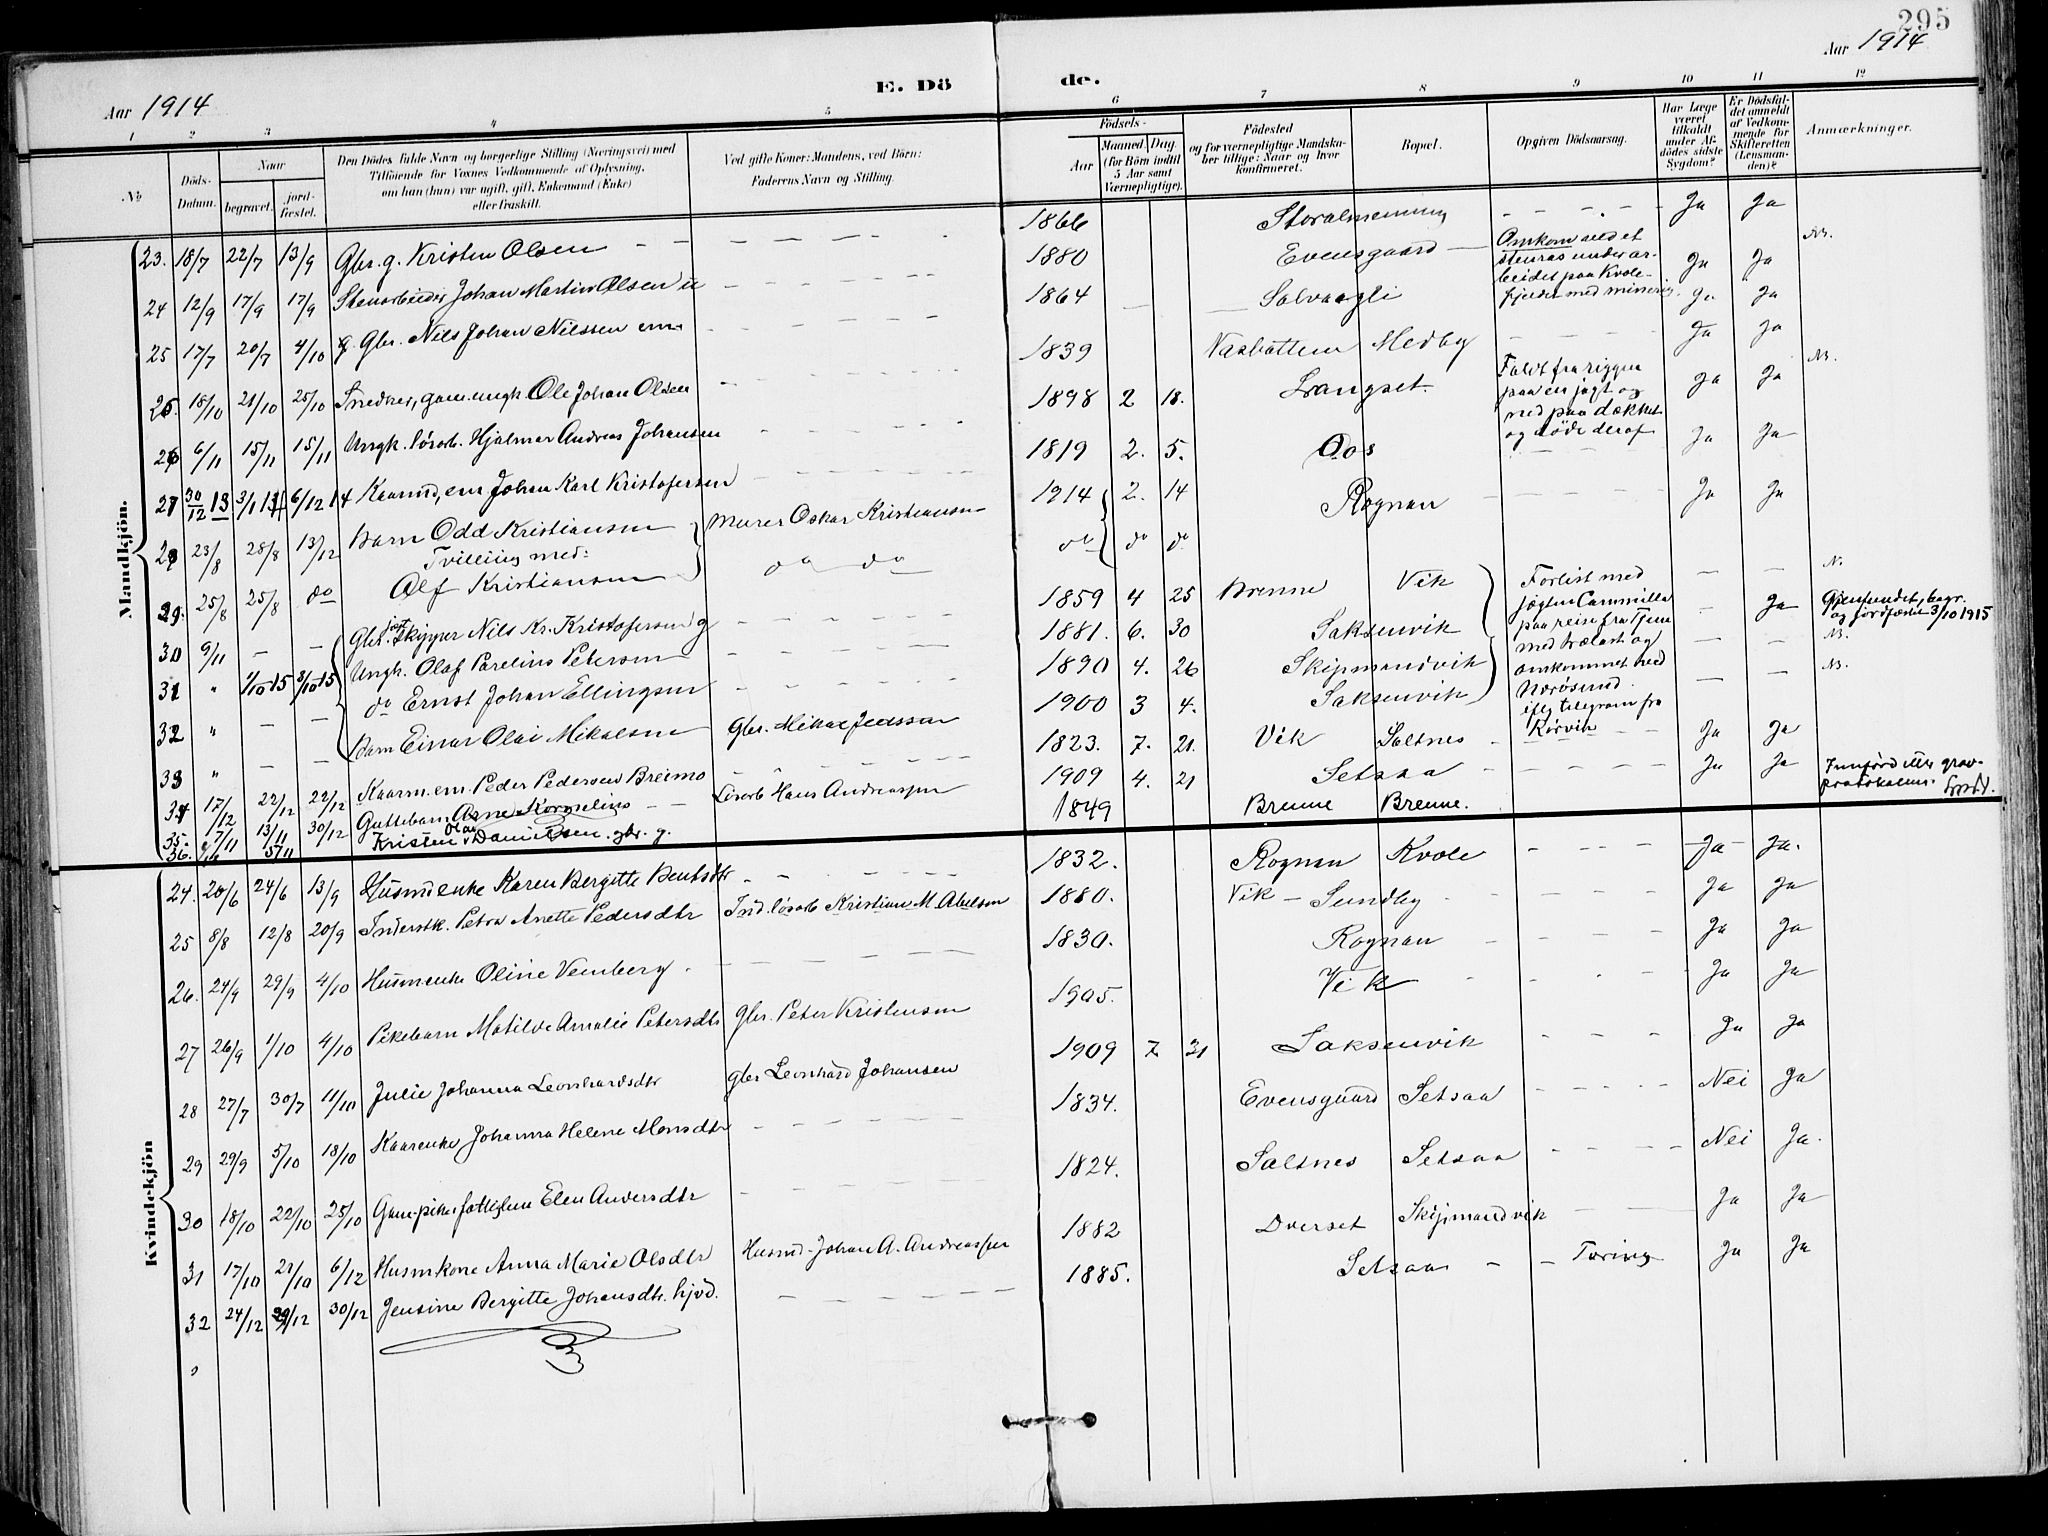 295
Aar 1914
Aar 1914
E. Dö de.
1 2 3 4 5 6 7 8 9 10 11 12
No
Döds-Datum.
Naar
begravet.
jord-fæstet.
Den Dödes fulde Navn og borgerlige Stilling (Næringsvei) med
Tilföiende for Voxnes Vedkommende af Oplysning,
om han (hun) var ugift, gift, Enkemand (Enke)
eller fraskilt.
Ved gifte Koner: Mandens, ved Börn:
Faderens Navn og Stilling.
Födsels-
Aar
Maaned. Dag.
(for Börn indtil
5 Aar samt
Værnepligtige).
Födested
og for værnepligtige Mandska-
ber tillige: Naar og hvor
konfirmeret.
Bopæl.
Opgiven Dödsaarsag.
Har Læge
været
tilkaldt
under Af-
dödes sidste
Sygdom?
Er Dödsfal-
det anmeldt
af Vedkom-
mende for
Skifteretten
(Lensman-
den)?
Anmærkninger.
Mandkjön.
23. 18/7 22/7 13/9 Gbr. g. Kristen Olsen 1866 Storalmenning Ja Ja
24 12/9 17/9 17/9 Stenarbeider Johan Martin Olsen u 1880 Evensgaard Omkom ved et stenras under ar-beidet paa Kvole-fjeldet med minering. Ja Ja NB.
25 17/7 20/7 4/10 g. Gbr. Nils Johan Nilssen em. 1864 Solvaagli Ja Ja
25. 18/10 21/10 25/10 Snedker, gam. ungk. Ole Johan Olsen 1839 Næsbotten Medby Ja Ja
26 6/11 15/11 15/11 Ungk. lösarb. Hjalmar Andreas Johansen 1898 2 18. Langset. Faldt fra riggen paa en jagt og ned paa dækket og döde deraf Ja Ja NB.
27 30/12 13 3/1 14 6/12 14 Kaarmd, em Johan Karl Kristofersen 1819 2. 5. Oos Ja Ja
28 23/8 28/8 13/12 Barn Odd Kristiansen Murer Oskar Kristiansen 1914 2. 14 Rognan Ja Ja
Tvilling med:
29. 25/8 25/8 do Olf Kristiansen do do do do do
30 9/11 — — Gbr. jagtskipper Nils Kr. Kristofersen g 1859 4 25 Brenne Vik Forlist med jægten Cammilla paa reise fra Tjem med trælast og omkommet ved Nærösund iflg telegram fra Rörvik — — N.
31 " 1/10 15 3/10 15 Ungk. Olaf Parelius Petersen 1881. 6. 30 Saksenvik — Ja Gjenfundet, begr. og jordfæstet 3/10 1915
32 " — — do Ernst Johan Ellingsen 1890 4. 26 Skipmandvik — — NB.
33 " — — Barn Einar Olai Mikalsen Gbr. Mikal Jenssen 1900 3 4. Saksenvik — — NB.
34 17/12 22/12 22/12 Kaarm. em. Peder Pedersen Breimo 1823. 7. 21. Vik Saltnes Ja Ja
35. 7/11 13/11 30/12 Guttebarn Arne Kornelius Lösarb Hans Andreassen 1909 4. 21 Setsaa Ja Ja
36. 5/11 Kristen Olai Danielsen. gbr. g. 1849 Brenne Brenne. Innförd etter grav-protokollen.
Kvindekjön
24. 20/6 24/6 13/9 Husmdenke Karen Bergitte Bentsdtr 1832. Rognan Kvole Ja Ja.
25 8/8 12/8 20/9 Inderstk. Petra Anette Pedersdtr Ind. lösarb Kristian M. Abelsen 1880. Vik Sundby Ja Ja
26. 24/9 29/9 4/10 Husmenke Oline Vemberg 1830. Rognan Ja Ja
27 26/9 1/10 4/10 Pikebarn Matilde Amalie Petersdtr Gbr. Peter Kristensen 1905. Vik Ja Ja
28 27/7 30/7 11/10 Julie Johanna Leonhardsdtr gbr Leonhard Johansen 1909 7 31 Saksenvik Ja Ja
29 29/9 5/10 18/10 Kaarenke Johanna Helene Monsdtr 1834. Evensgaard Setsaa Nei Ja
30 18/10 22/10 25/10 Gam. pike fattiglem Elen Andersdtr 1824. Saltnes Setsaa Nei Ja.
31 17/10 21/10 6/12 Husmkone Anna Marie Olsdtr Husmd. Johan A. Andreassen 1882 Dverset Skipmandvik Ja Ja
32 24/12 29/12 30/12 Jensine Bergitte Johansdtr. hjvd. 1885. Setsaa Tæring Ja Ja